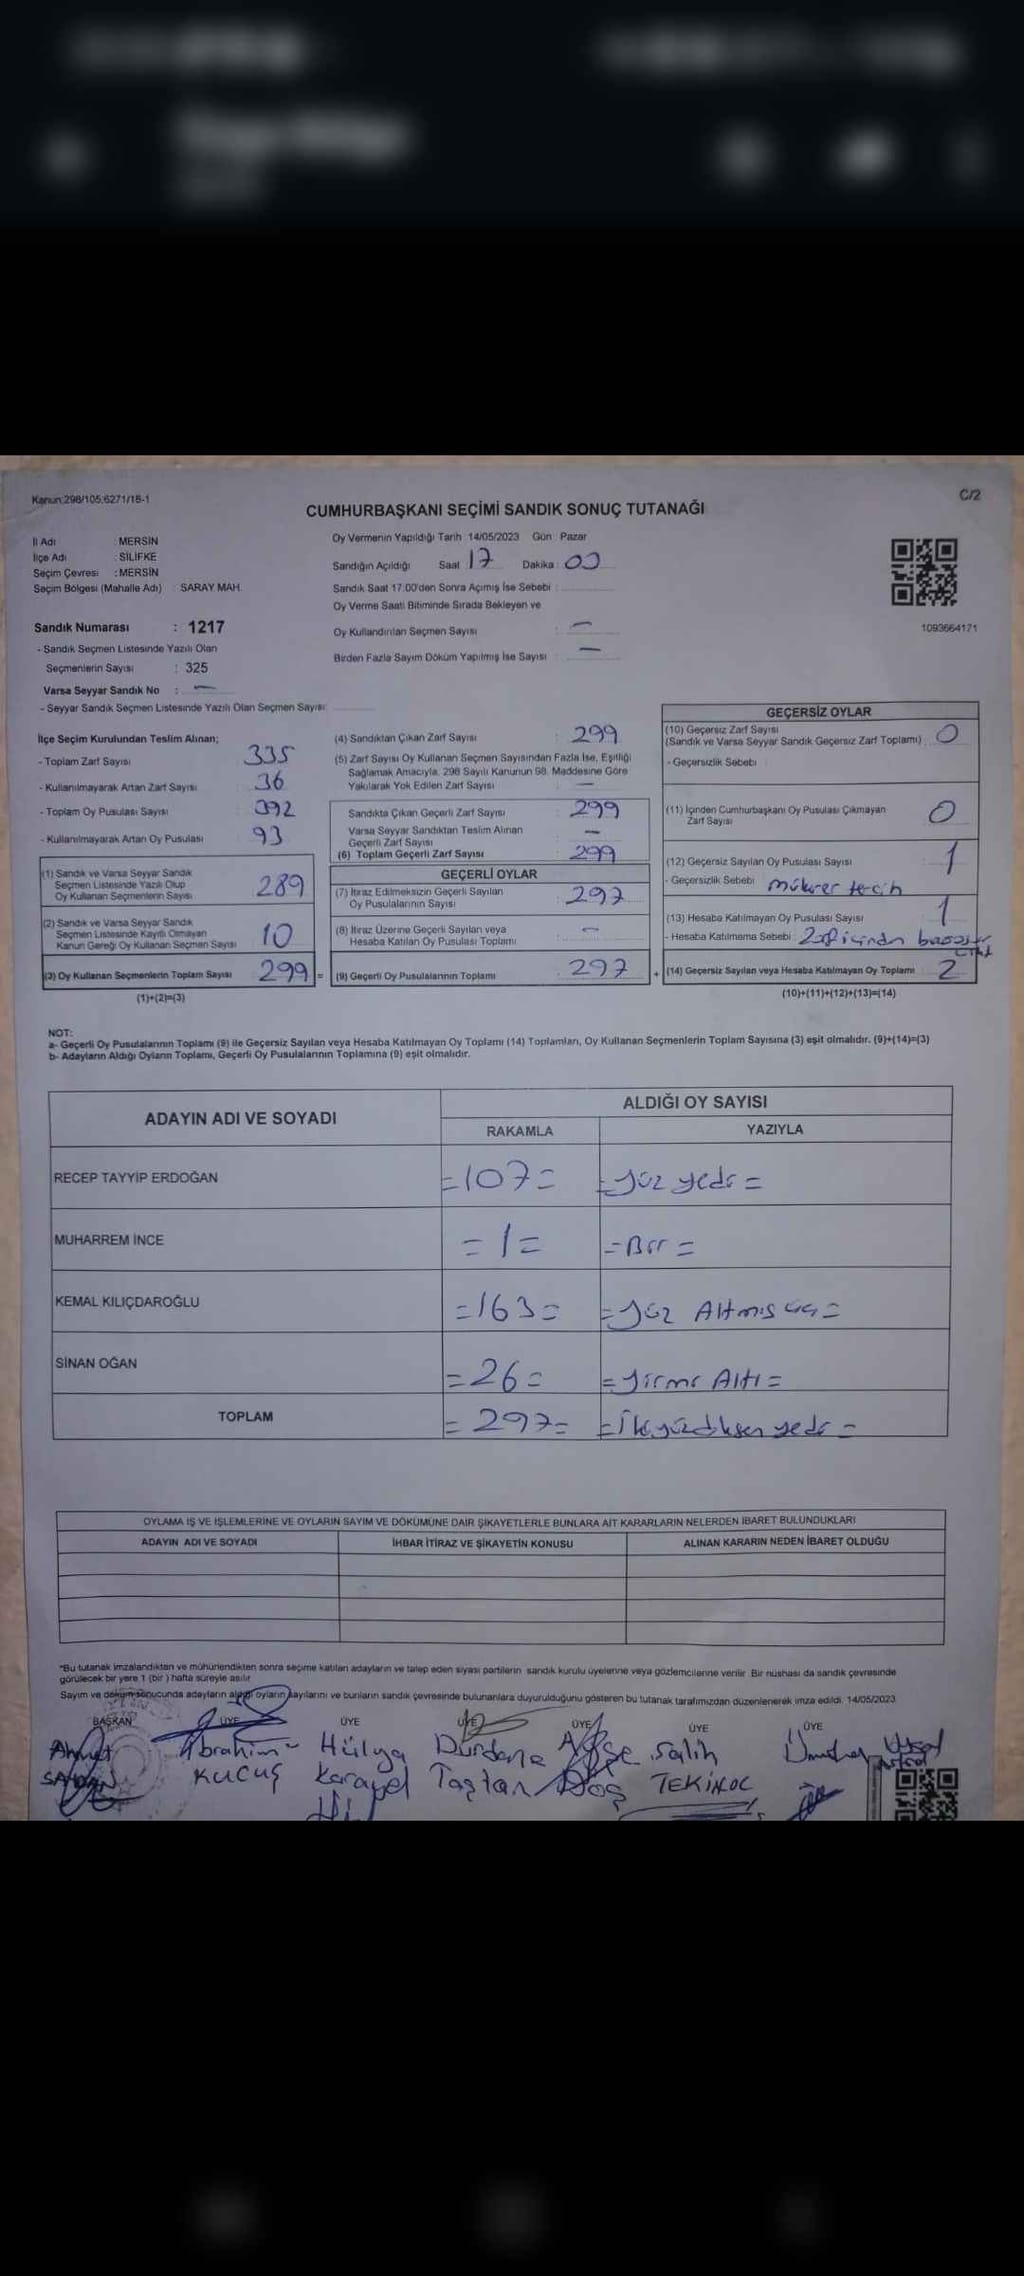 Kanun:298/105;6271/18-1
C/2
CUMHURBAŞKANI SEÇİMİ SANDIK SONUÇ TUTANAĞI
İl Adı : MERSİN
İlçe Adı : SİLİFKE
Seçim Çevresi : MERSİN
Seçim Bölgesi (Mahalle Adı) : SARAY MAH.
Oy Vermenin Yapıldığı Tarih :14/05/2023 Gün : Pazar
Sandığın Açıldığı Saat 17 Dakika : 00
Sandık Saat 17:00'den Sonra Açımış İse Sebebi :
Oy Verme Saati Bitiminde Sırada Bekleyen ve
Oy Kullandırılan Seçmen Sayısı : —
Birden Fazla Sayım Döküm Yapılmış İse Sayısı : —
1093664171
Sandık Numarası : 1217
- Sandık Seçmen Listesinde Yazılı Olan
Seçmenlerin Sayısı : 325
Varsa Seyyar Sandık No : —
- Seyyar Sandık Seçmen Listesinde Yazılı Olan Seçmen Sayısı
İlçe Seçim Kurulundan Teslim Alınan;
- Toplam Zarf Sayısı : 335
- Kullanılmayarak Artan Zarf Sayısı : 36
- Toplam Oy Pusulası Sayısı : 392
- Kullanılmayarak Artan Oy Pusulası : 93
(1) Sandık ve Varsa Seyyar Sandık
Seçmen Listesinde Yazılı Olup
Oy Kullanan Seçmenlerin Sayısı 289
(2) Sandık ve Varsa Seyyar Sandık
Seçmen Listesinde Kayıtlı Olmayan
Kanun Gereği Oy Kullanan Seçmen Sayısı 10
(3) Oy Kullanan Seçmenlerin Toplam Sayısı 299 =
(1)+(2)=(3)
(4) Sandıktan Çıkan Zarf Sayısı : 299
(5) Zarf Sayısı Oy Kullanan Seçmen Sayısından Fazla İse, Eşitliği
Sağlamak Amacıyla, 298 Sayılı Kanunun 98. Maddesine Göre
Yakılarak Yok Edilen Zarf Sayısı : —
Sandıkta Çıkan Geçerli Zarf Sayısı : 299
Varsa Seyyar Sandıktan Teslim Alınan
Geçerli Zarf Sayısı : —
(6) Toplam Geçerli Zarf Sayısı : 299
GEÇERLİ OYLAR
(7) İtiraz Edilmeksizin Geçerli Sayılan
Oy Pusulalarının Sayısı : 297
(8) İtiraz Üzerine Geçerli Sayılan veya
Hesaba Katılan Oy Pusulası Toplamı : —
(9) Geçerli Oy Pusulalarının Toplamı : 297 +
GEÇERSİZ OYLAR
(10) Geçersiz Zarf Sayısı
(Sandık ve Varsa Seyyar Sandık Geçersiz Zarf Toplamı) : 0
- Geçersizlik Sebebi :
(11) İçinden Cumhurbaşkanı Oy Pusulası Çıkmayan
Zarf Sayısı : 0
(12) Geçersiz Sayılan Oy Pusulası Sayısı : 1
- Geçersizlik Sebebi : mükrer tercih
(13) Hesaba Katılmayan Oy Pusulası Sayısı : 1
- Hesaba Katılmama Sebebi : Zarf içinden
(14) Geçersiz Sayılan veya Hesaba Katılmayan Oy Toplamı : 2
(10)+(11)+(12)+(13)=(14)
NOT:
a- Geçerli Oy Pusulalarının Toplamı (9) ile Geçersiz Sayılan veya Hesaba Katılmayan Oy Toplamı (14) Toplamları, Oy Kullanan Seçmenlerin Toplam Sayısına (3) eşit olmalıdır. (9)+(14)=(3)
b- Adayların Aldığı Oyların Toplamı, Geçerli Oy Pusulalarının Toplamına (9) eşit olmalıdır.
ADAYIN ADI VE SOYADI
ALDIĞI OY SAYISI
RAKAMLA YAZIYLA
RECEP TAYYİP ERDOĞAN =107= =yüz yedi=
MUHARREM İNCE =1= =Bir=
KEMAL KILIÇDAROĞLU =163= =yüz Altmış üç=
SİNAN OĞAN =26= =yirmi Altı=
TOPLAM =297= =ikiyüzdoksan yedi=
OYLAMA İŞ VE İŞLEMLERİNE VE OYLARIN SAYIM VE DÖKÜMÜNE DAİR ŞİKAYETLERLE BUNLARA AİT KARARLARIN NELERDEN İBARET BULUNDUKLARI
ADAYIN ADI VE SOYADI İHBAR İTİRAZ VE ŞİKAYETİN KONUSU ALINAN KARARIN NEDEN İBARET OLDUĞU
*Bu tutanak imzalandıktan ve mühürlendikten sonra seçime katılan adayların ve talep eden siyasi partilerin sandık kurulu üyelerine veya gözlemcilerine verilir. Bir nüshası da sandık çevresinde
görülecek bir yere 1 (bir ) hafta süreyle asılır
Sayım ve döküm sonucunda adayların aldığı oyların sayılarını ve bunların sandık çevresinde bulunanlara duyurulduğunu gösteren bu tutanak tarafımızdan düzenlenerek imza edildi. 14/05/2023
BAŞKAN ÜYE ÜYE ÜYE ÜYE ÜYE ÜYE
Ahmet İbrahim Hülya Durdane Ayşe Salih
Karayel Taştan